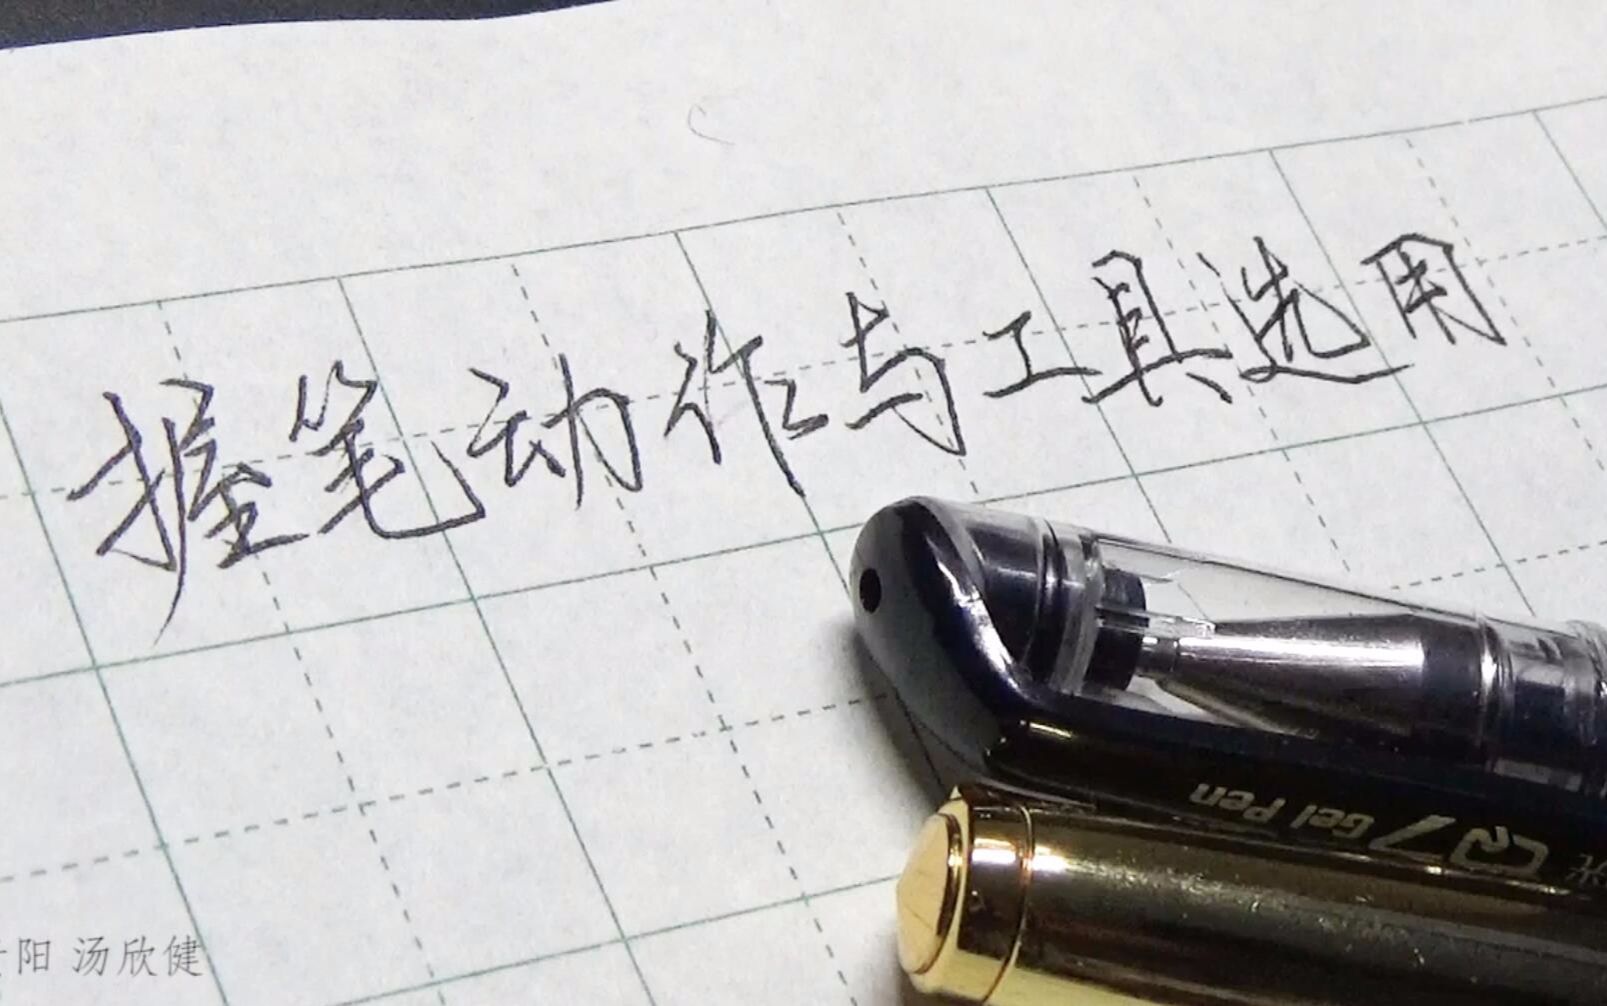 握笔动作与工具选用
Q7 Gel Pen
阳 汤欣健